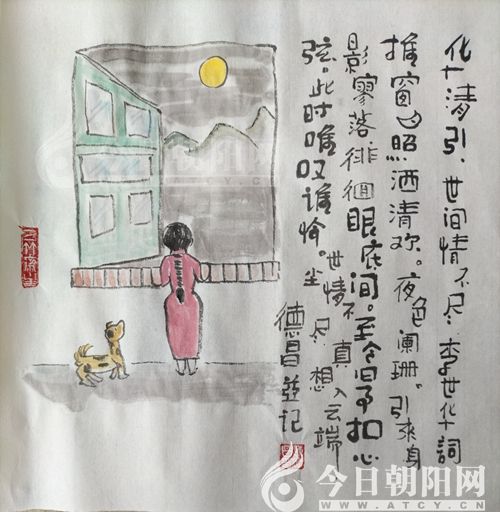 华清引、世间情不尽 李世华词
推窗月照洒清欢。夜色阑珊。引来身
影寥落徘徊眼底间。至今扣心
弦。此时唯叹谁怜。尘世情不尽真想入云端
德昌并记
今日朝阳网
WWW.ATCY.CN